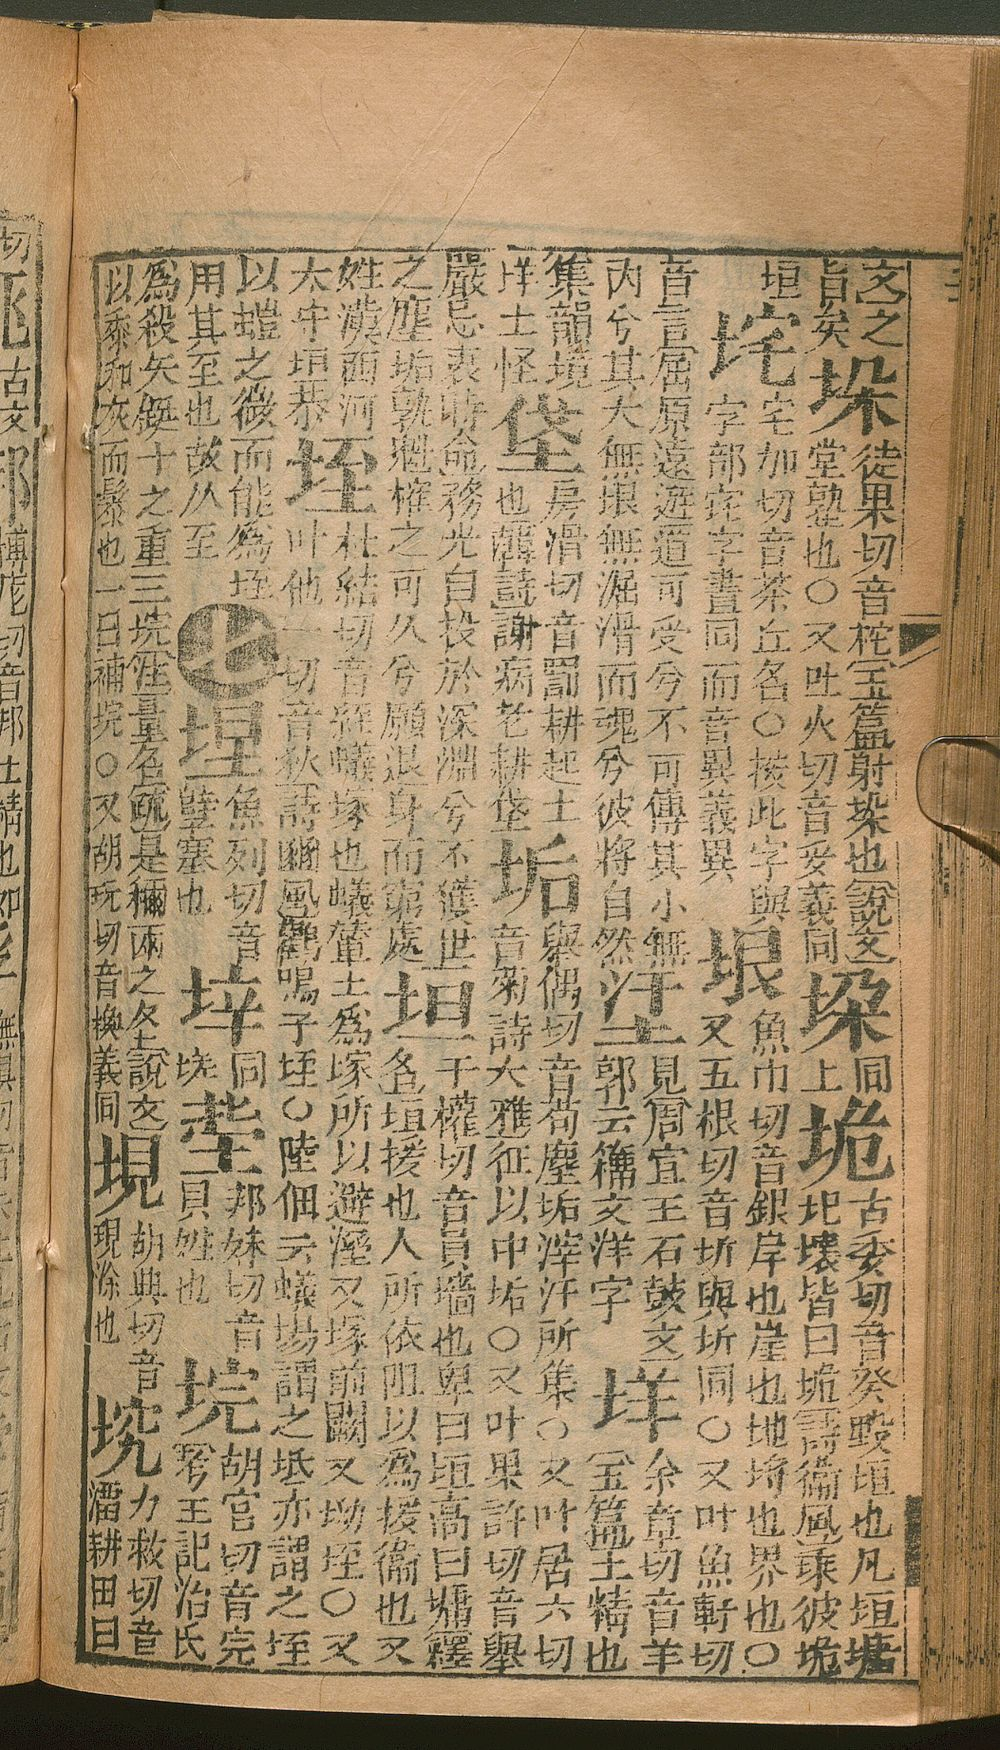 文之
旨矣
垛
徒果切音柁玉篇射垛也說文
堂塾也○又吐火切音妥義同
垜
同
上
垝
古委切音癸毀垣也凡垣墻
圯壞皆曰垝詩衞風乘彼垝
垣
垞
宅加切音茶丘名○按此字與
字部㡯字畫同而音異義異
垠
魚巾切音銀岸也崖也地堮也界也○
又五根切音圻與圻同○又叶魚軒切
音言屈原遠遊道可受兮不可傳其小無
內兮其大無垠無淈滑而魂兮彼將自然
見周宣王石鼓文
郭云籒文洋字
垟
余章切音羊
玉篇土精也
集韻境
垟土怪
垡
房滑切音罰耕起土
也韻詩謝病老耕垡
垢
舉偶切音苟塵垢滓汙所集○又叶居六切
音菊詩大雅征以中垢○又叶果許切音舉
嚴忌哀時命務光自投於深淵兮不獲世
之塵垢孰魁權之可久兮願退身而窮處
垣
于權切音員墻也卑曰垣高曰墉釋
名垣援也人所依阻以為援衞也又
姓漢西河
太守垣恭
垤
杜結切音絰蟻塚也蟻輦土為塚所以避溼又塚前闕又坳垤○又
叶他一切音秩詩豳風鸛鳴于垤○陸佃云蟻場謂之坻亦謂之垤
以螘之微而能為垤
用其至也故从至
七
魚列切音
孼塞也
同
邦妹切音
貝 也
垸
胡官切音完
考工記冶氏
為殺矢鋌十之重三垸注量名疏是稱兩之名說文
以黍和灰而鬃也一曰補垸○又胡玩切音換義同
垷
胡典切音
現涂也
力救切音
澑耕田曰